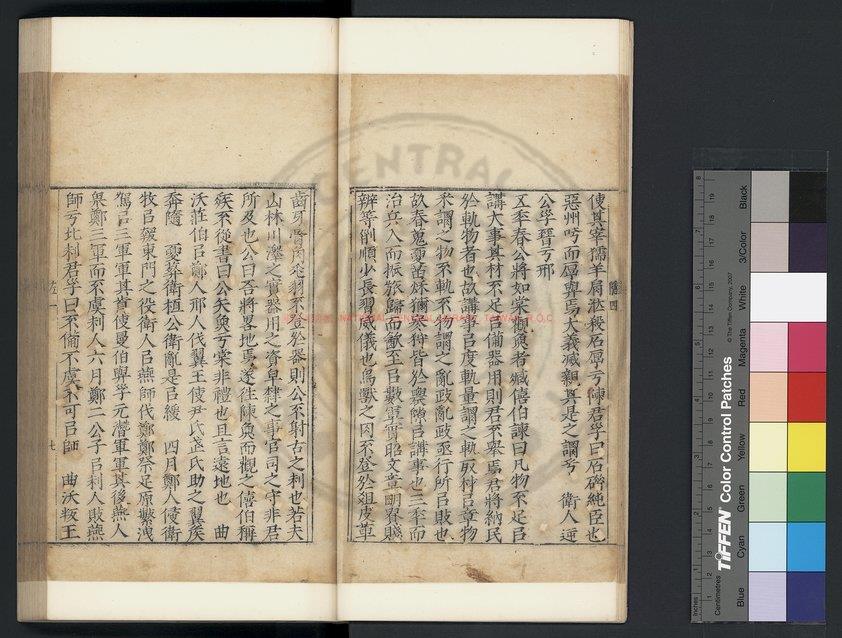 使其宰獳羊肩涖殺石厚于陳君子曰石碏純臣也
惡州吁而厚與焉大義滅親其是之謂乎 衛人逆
公子晉于邢
五年春公將如棠觀魚者臧僖伯諫曰凡物不足㠯
講大事其材不足㠯備器用則君不舉焉君將納民
於軌物者也故講事㠯度軌量謂之軌取材㠯章物
采謂之物不軌不物謂之亂政亂政亟行所㠯敗也
故春蒐夏苗秋獮冬狩皆於農隙㠯講事也三年而
治兵入而振旅歸而飲至㠯數軍實昭文章明貴賤
辨等列順少長習威儀也鳥獸之肉不登於俎皮革
隱四
齒牙骨角毛羽不登於器則公不射古之制也若夫
山林川澤之實器用之資皁隸之事官司之守非君
所及也公曰吾將略地焉遂往陳魚而觀之僖伯稱
疾不從書曰公矢魚于棠非禮也且言遠地也 曲
沃莊伯㠯鄭人邢人伐翼王使尹氏武氏助之翼侯
奔隨 夏葬衛桓公衛亂是㠯緩 四月鄭人侵衛
牧㠯報東門之役衛人㠯燕師伐鄭鄭祭足原繁洩
駕㠯三軍軍其前使曼伯與子元潛軍軍其後燕人
畏鄭三軍而不虞制人六月鄭二公子㠯制人敗燕
師于北制君子曰不備不虞不可㠯師 曲沃叛王
左一 七
TIFFEN Color Control Patches
© The Tiffen Company, 2007
Blue Cyan Green Yellow Red Magenta White 3/Color Black
Inches
Centimetres